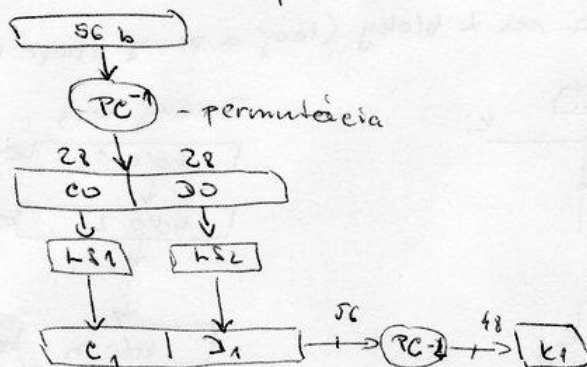 56 b
PC-1 - permutácia
28 28
C0 D0
LS1 LS2
C1 D1 56 PC-2 48 K1